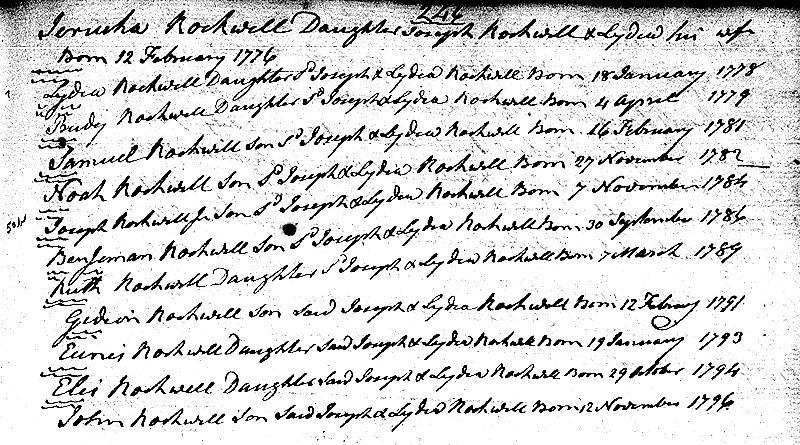 246
Jerusha Rockwell Daughter Joseph Rockwell & Lydia his wife
Born 12 February 1776
Lydia Rockwell Daughter Sd Joseph & Lydia Rockwell Born 18 January 1778
Rockwell Daughter Sd Joseph & Lydia Rockwell Born 4 April 1779
Samuel Rockwell Son Sd Joseph & Lydia Rockwell Born 16 February 1781
Noah Rockwell Son Sd Joseph & Lydia Rockwell Born 27 November 1782
Joseph Rockwell Jr Son Sd Joseph & Lydia Rockwell Born 7 November 1784
Benjeman Rockwell Son Sd Joseph & Lydia Rockwell Born 30 September 1786
Ruth Rockwell Daughter Sd Joseph & Lydia Rockwell Born 7 March 1789
Gideon Rockwell Son Said Joseph & Lydia Rockwell Born 12 Februry 1791
Eunis Rockwell Daughter Said Joseph & Lydia Rockwell Born 19 January 1793
Rockwell Daughter Said Joseph & Lydia Rockwell Born 29 October 1794
John Rockwell Son Said Joseph & Lydia Rockwell Born 12 November 1796